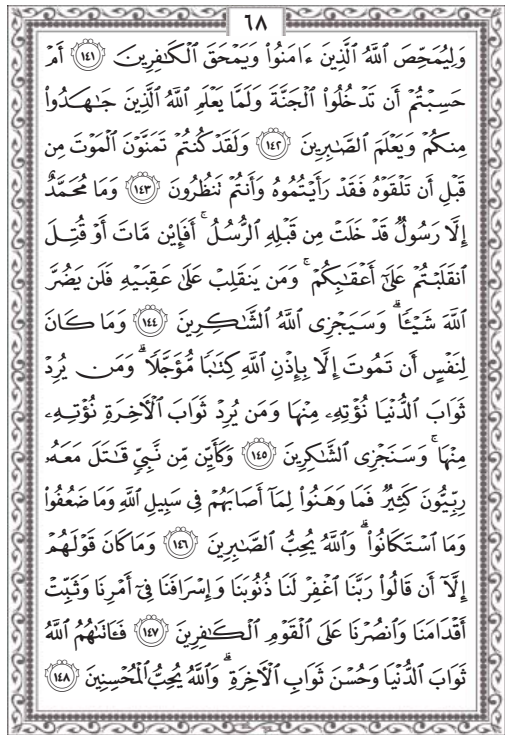 ٦٨
وَلِيُمَحِّصَ ٱللَّهُ ٱلَّذِينَ ءَامَنُوا۟ وَيَمْحَقَ ٱلْكَٰفِرِينَ ١٤١ أَمْ
حَسِبْتُمْ أَن تَدْخُلُوا۟ ٱلْجَنَّةَ وَلَمَّا يَعْلَمِ ٱللَّهُ ٱلَّذِينَ جَٰهَدُوا۟
مِنكُمْ وَيَعْلَمَ ٱلصَّٰبِرِينَ ١٤٢ وَلَقَدْ كُنتُمْ تَمَنَّوْنَ ٱلْمَوْتَ مِن
قَبْلِ أَن تَلْقَوْهُ فَقَدْ رَأَيْتُمُوهُ وَأَنتُمْ تَنظُرُونَ ١٤٣ وَمَا مُحَمَّدٌ
إِلَّا رَسُولٌ قَدْ خَلَتْ مِن قَبْلِهِ ٱلرُّسُلُ ۚ أَفَإِي۟ن مَّاتَ أَوْ قُتِلَ
ٱنقَلَبْتُمْ عَلَىٰٓ أَعْقَٰبِكُمْ ۚ وَمَن يَنقَلِبْ عَلَىٰ عَقِبَيْهِ فَلَن يَضُرَّ
ٱللَّهَ شَيْـًٔا ۗ وَسَيَجْزِى ٱللَّهُ ٱلشَّٰكِرِينَ ١٤٤ وَمَا كَانَ
لِنَفْسٍ أَن تَمُوتَ إِلَّا بِإِذْنِ ٱللَّهِ كِتَٰبًا مُّؤَجَّلًا ۗ وَمَن يُرِدْ
ثَوَابَ ٱلدُّنْيَا نُؤْتِهِۦ مِنْهَا وَمَن يُرِدْ ثَوَابَ ٱلْءَاخِرَةِ نُؤْتِهِۦ
مِنْهَا ۚ وَسَنَجْزِى ٱلشَّٰكِرِينَ ١٤٥ وَكَأَيِّن مِّن نَّبِىٍّ قَٰتَلَ مَعَهُۥ
رِبِّيُّونَ كَثِيرٌ فَمَا وَهَنُوا۟ لِمَآ أَصَابَهُمْ فِى سَبِيلِ ٱللَّهِ وَمَا ضَعُفُوا۟
وَمَا ٱسْتَكَانُوا۟ ۗ وَٱللَّهُ يُحِبُّ ٱلصَّٰبِرِينَ ١٤٦ وَمَا كَانَ قَوْلَهُمْ
إِلَّآ أَن قَالُوا۟ رَبَّنَا ٱغْفِرْ لَنَا ذُنُوبَنَا وَإِسْرَافَنَا فِىٓ أَمْرِنَا وَثَبِّتْ
أَقْدَامَنَا وَٱنصُرْنَا عَلَى ٱلْقَوْمِ ٱلْكَٰفِرِينَ ١٤٧ فَـَٔاتَىٰهُمُ ٱللَّهُ
ثَوَابَ ٱلدُّنْيَا وَحُسْنَ ثَوَابِ ٱلْءَاخِرَةِ ۗ وَٱللَّهُ يُحِبُّ ٱلْمُحْسِنِينَ ١٤٨